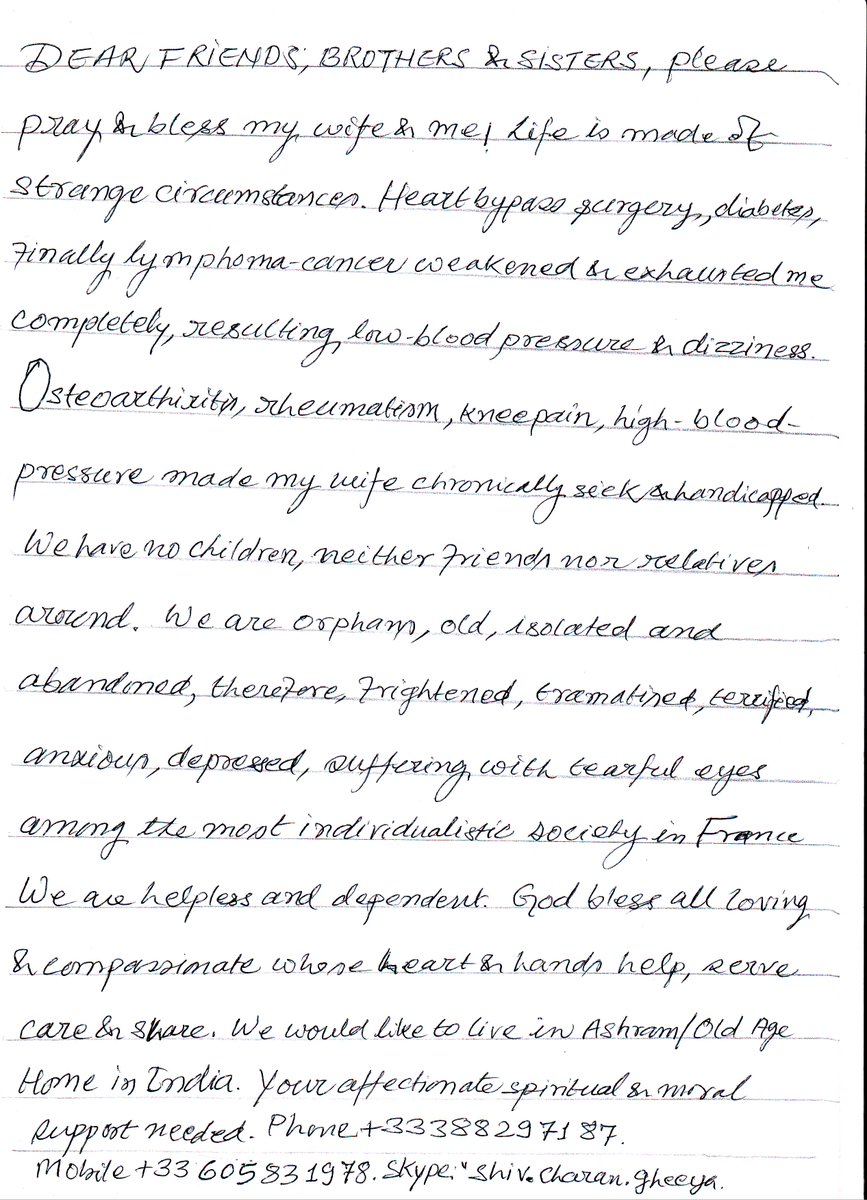 DEAR FRIENDS, BROTHERS & SISTERS, please
pray & bless my wife & me! Life is made of
strange circumstances. Heart bypass surgery, diabetes,
Finally lymphoma-cancer weakened & exhausted me
completely, resulting low-blood pressure & dizziness.
Osteoarthiritis, rheumatism, knee pain, high-blood-
pressure made my wife chronically sick & handicapped.
We have no children, neither friends nor relatives
around. We are orphans, old, isolated and
abandoned, therefore, frightened, tramatised, terrified,
anxious, depressed, suffering with tearful eyes
among the most individualistic society in France
We are helpless and dependent. God bless all loving
& compassionate whose heart & hands help, serve
care & share. We would like to live in Ashram/Old Age
Home in India. Your affectionate spiritual & moral
support needed. Phone +33388297187.
Mobile +33605831978. Skype: "Shiv. Charan. gheeya.